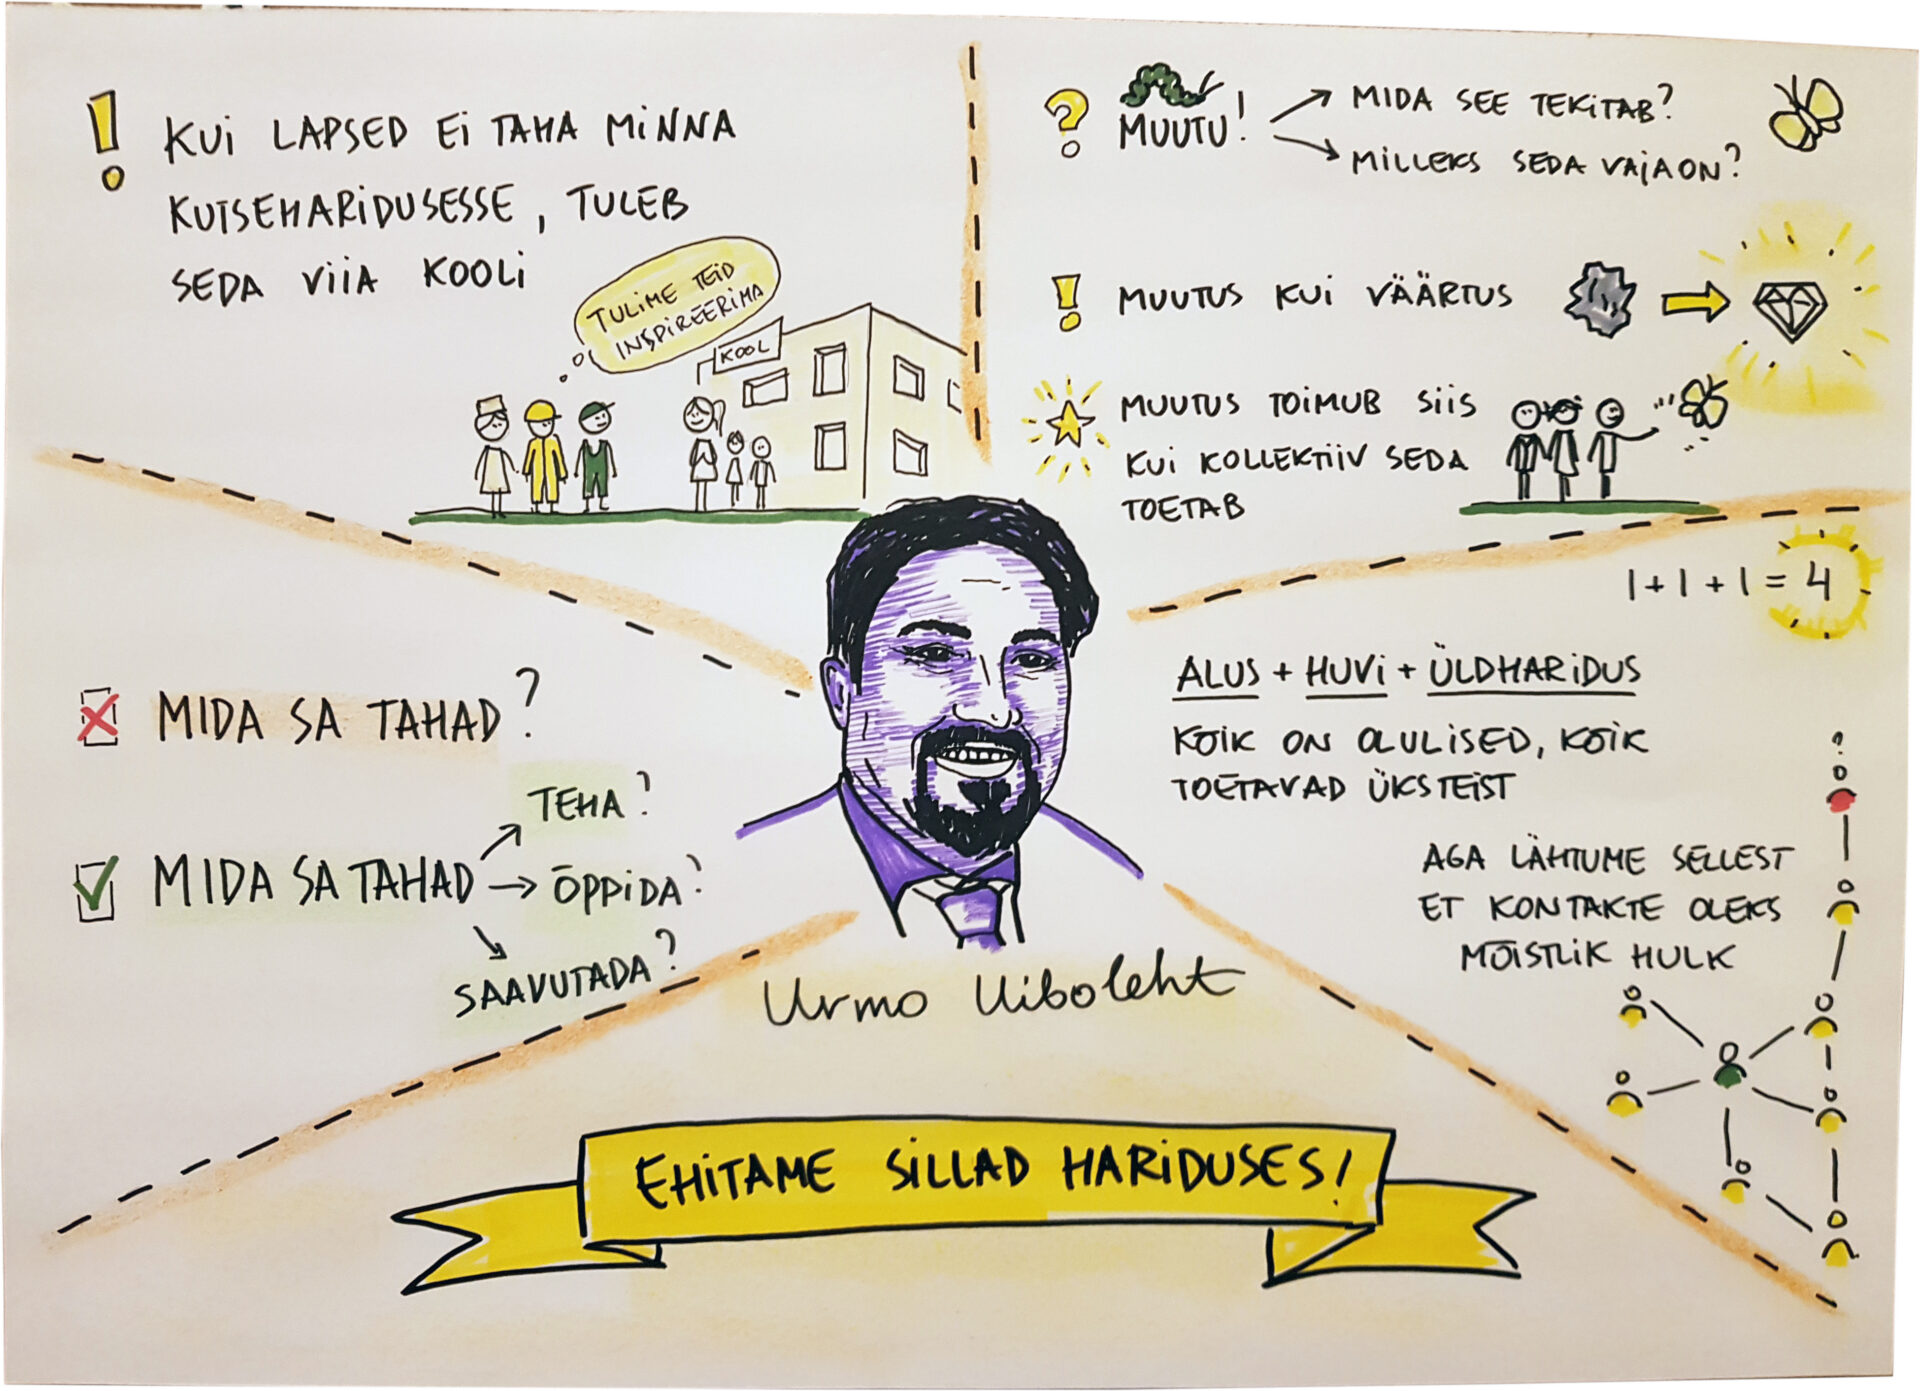 ! KUI LAPSED EI TAHA MINNA
KUTSEHARIDUSESSE, TULEB
SEDA VIIA KOOLI
TULIME TEID
INSPIREERIMA
KOOL
? MUUTU! MIDA SEE TEKITAB?
MILLEKS SEDA VAJA ON?
! MUUTUS KUI VÄÄRTUS
MUUTUS TOIMUB SIIS
KUI KOLLEKTIIV SEDA
TOETAB
MIDA SA TAHAD?
MIDA SA TAHAD
TEHA?
ÕPPIDA?
SAAVUTADA?
1+1+1=4
ALUS + HUVI + ÜLDHARIDUS
KÕIK ON OLULISED, KÕIK
TOETAVAD ÜKSTEIST
AGA LÄHTUME SELLEST
ET KONTAKTE OLEKS
MÕISTLIK HULK
?
Urmo Uiboleht
EHITAME SILLAD HARIDUSES!